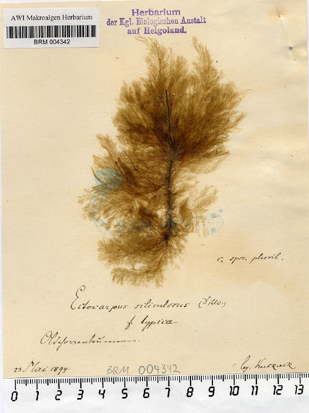 AWI Makroalgen Herbarium
BRM 004342
Herbarium
der Kgl. Biologischen Anstalt
auf Helgoland.
c. spor. pluril.
Ectocarpus siliculosus (Dillw.)
f. typica
23 Mai 1894
BRM 004342
leg. Kuckuck
0 1 2 3 4 5 6 7 8 9 10 11 12 13 14 15